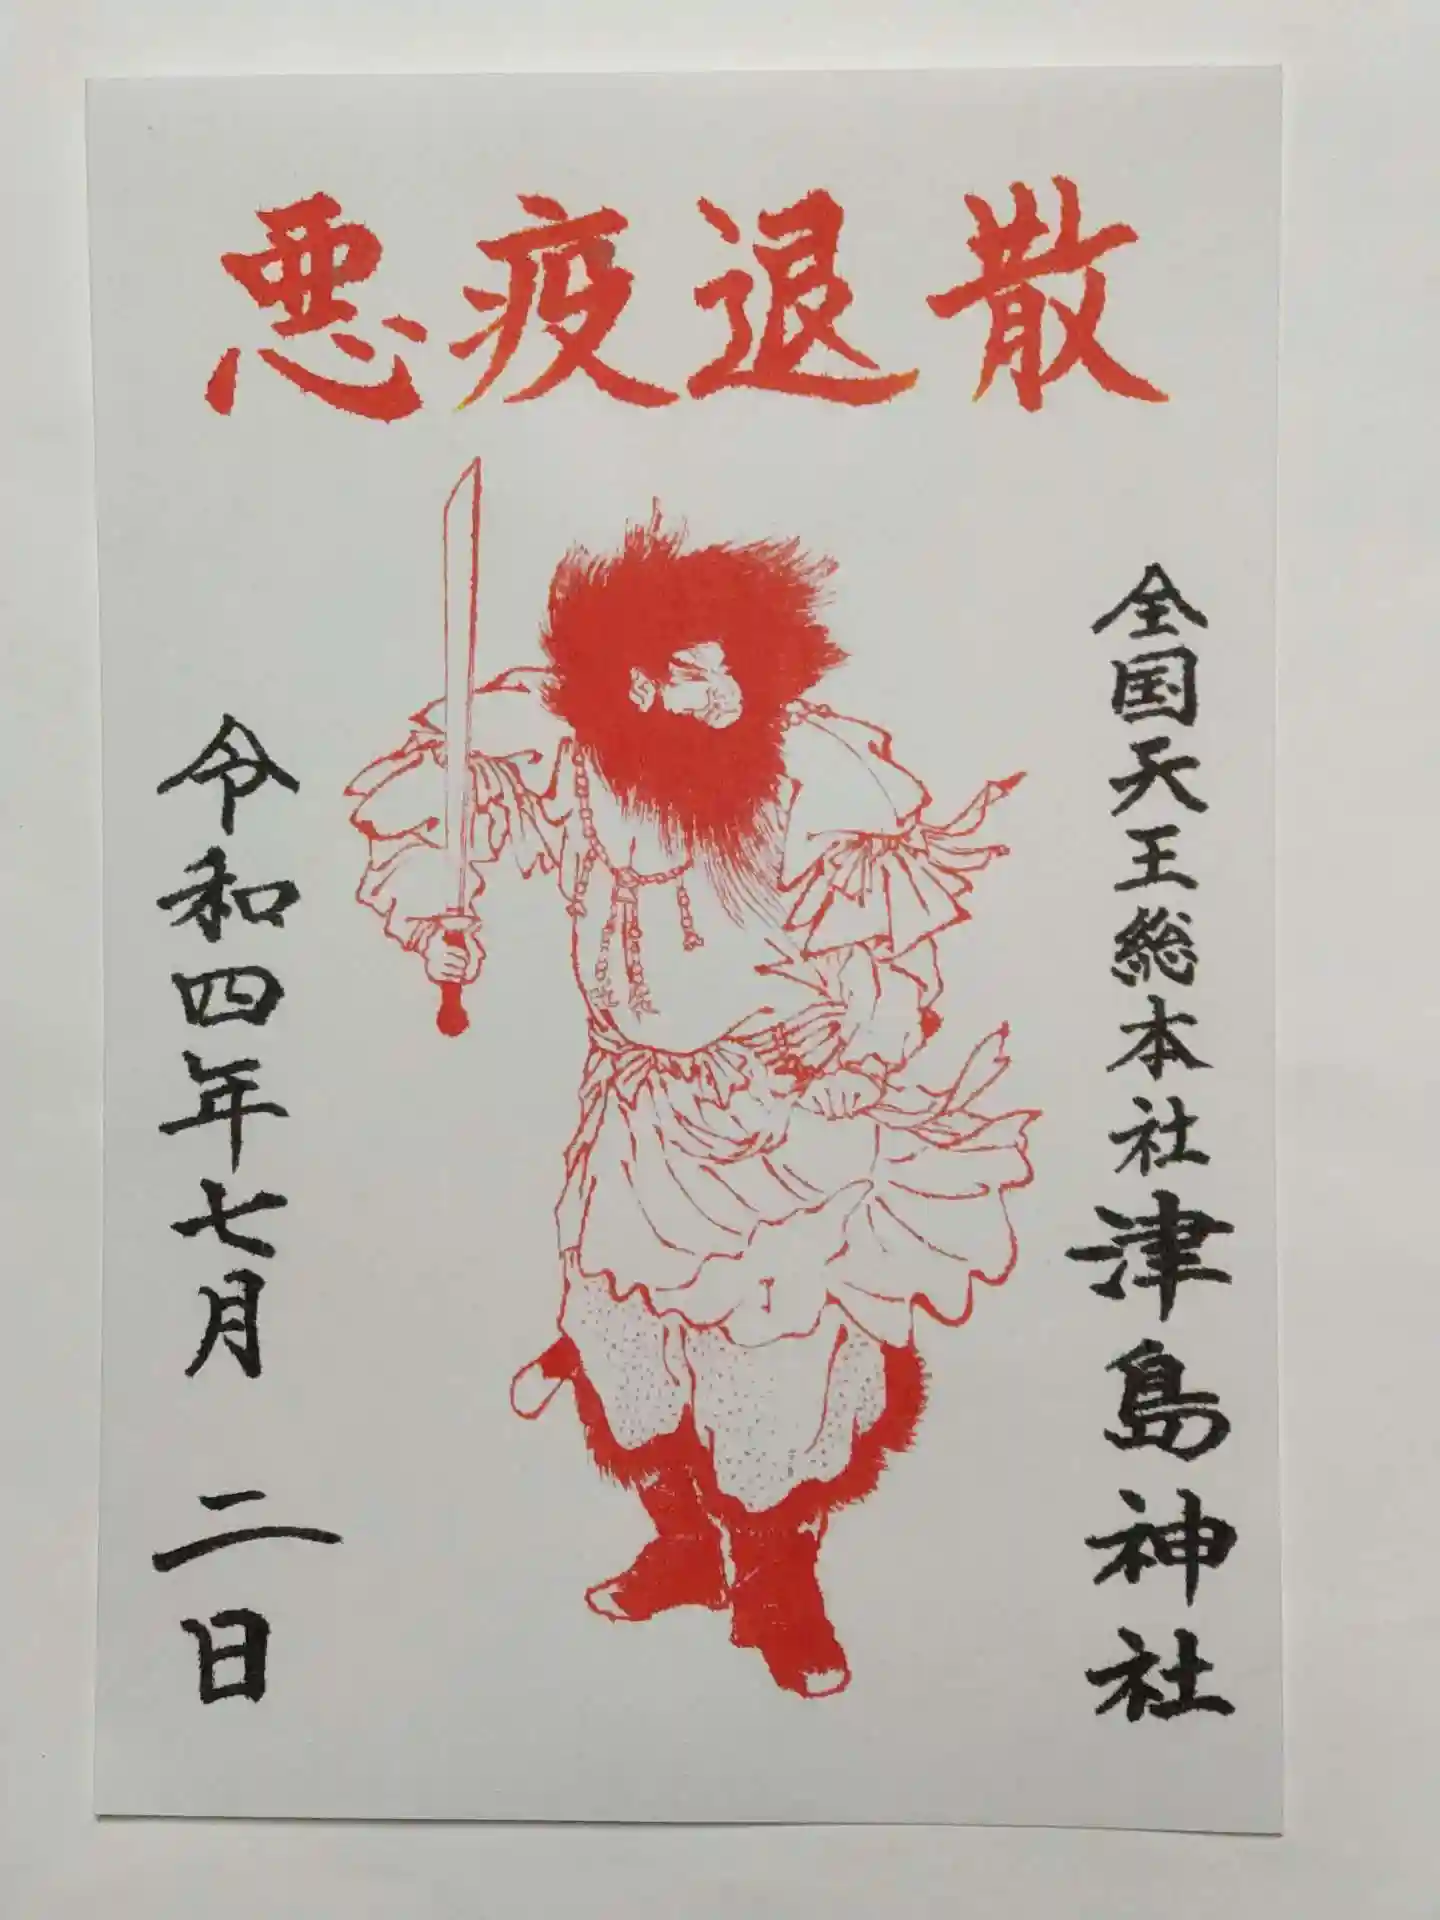 悪疫退散
全国天王総本社津島神社
令和四年七月 二日